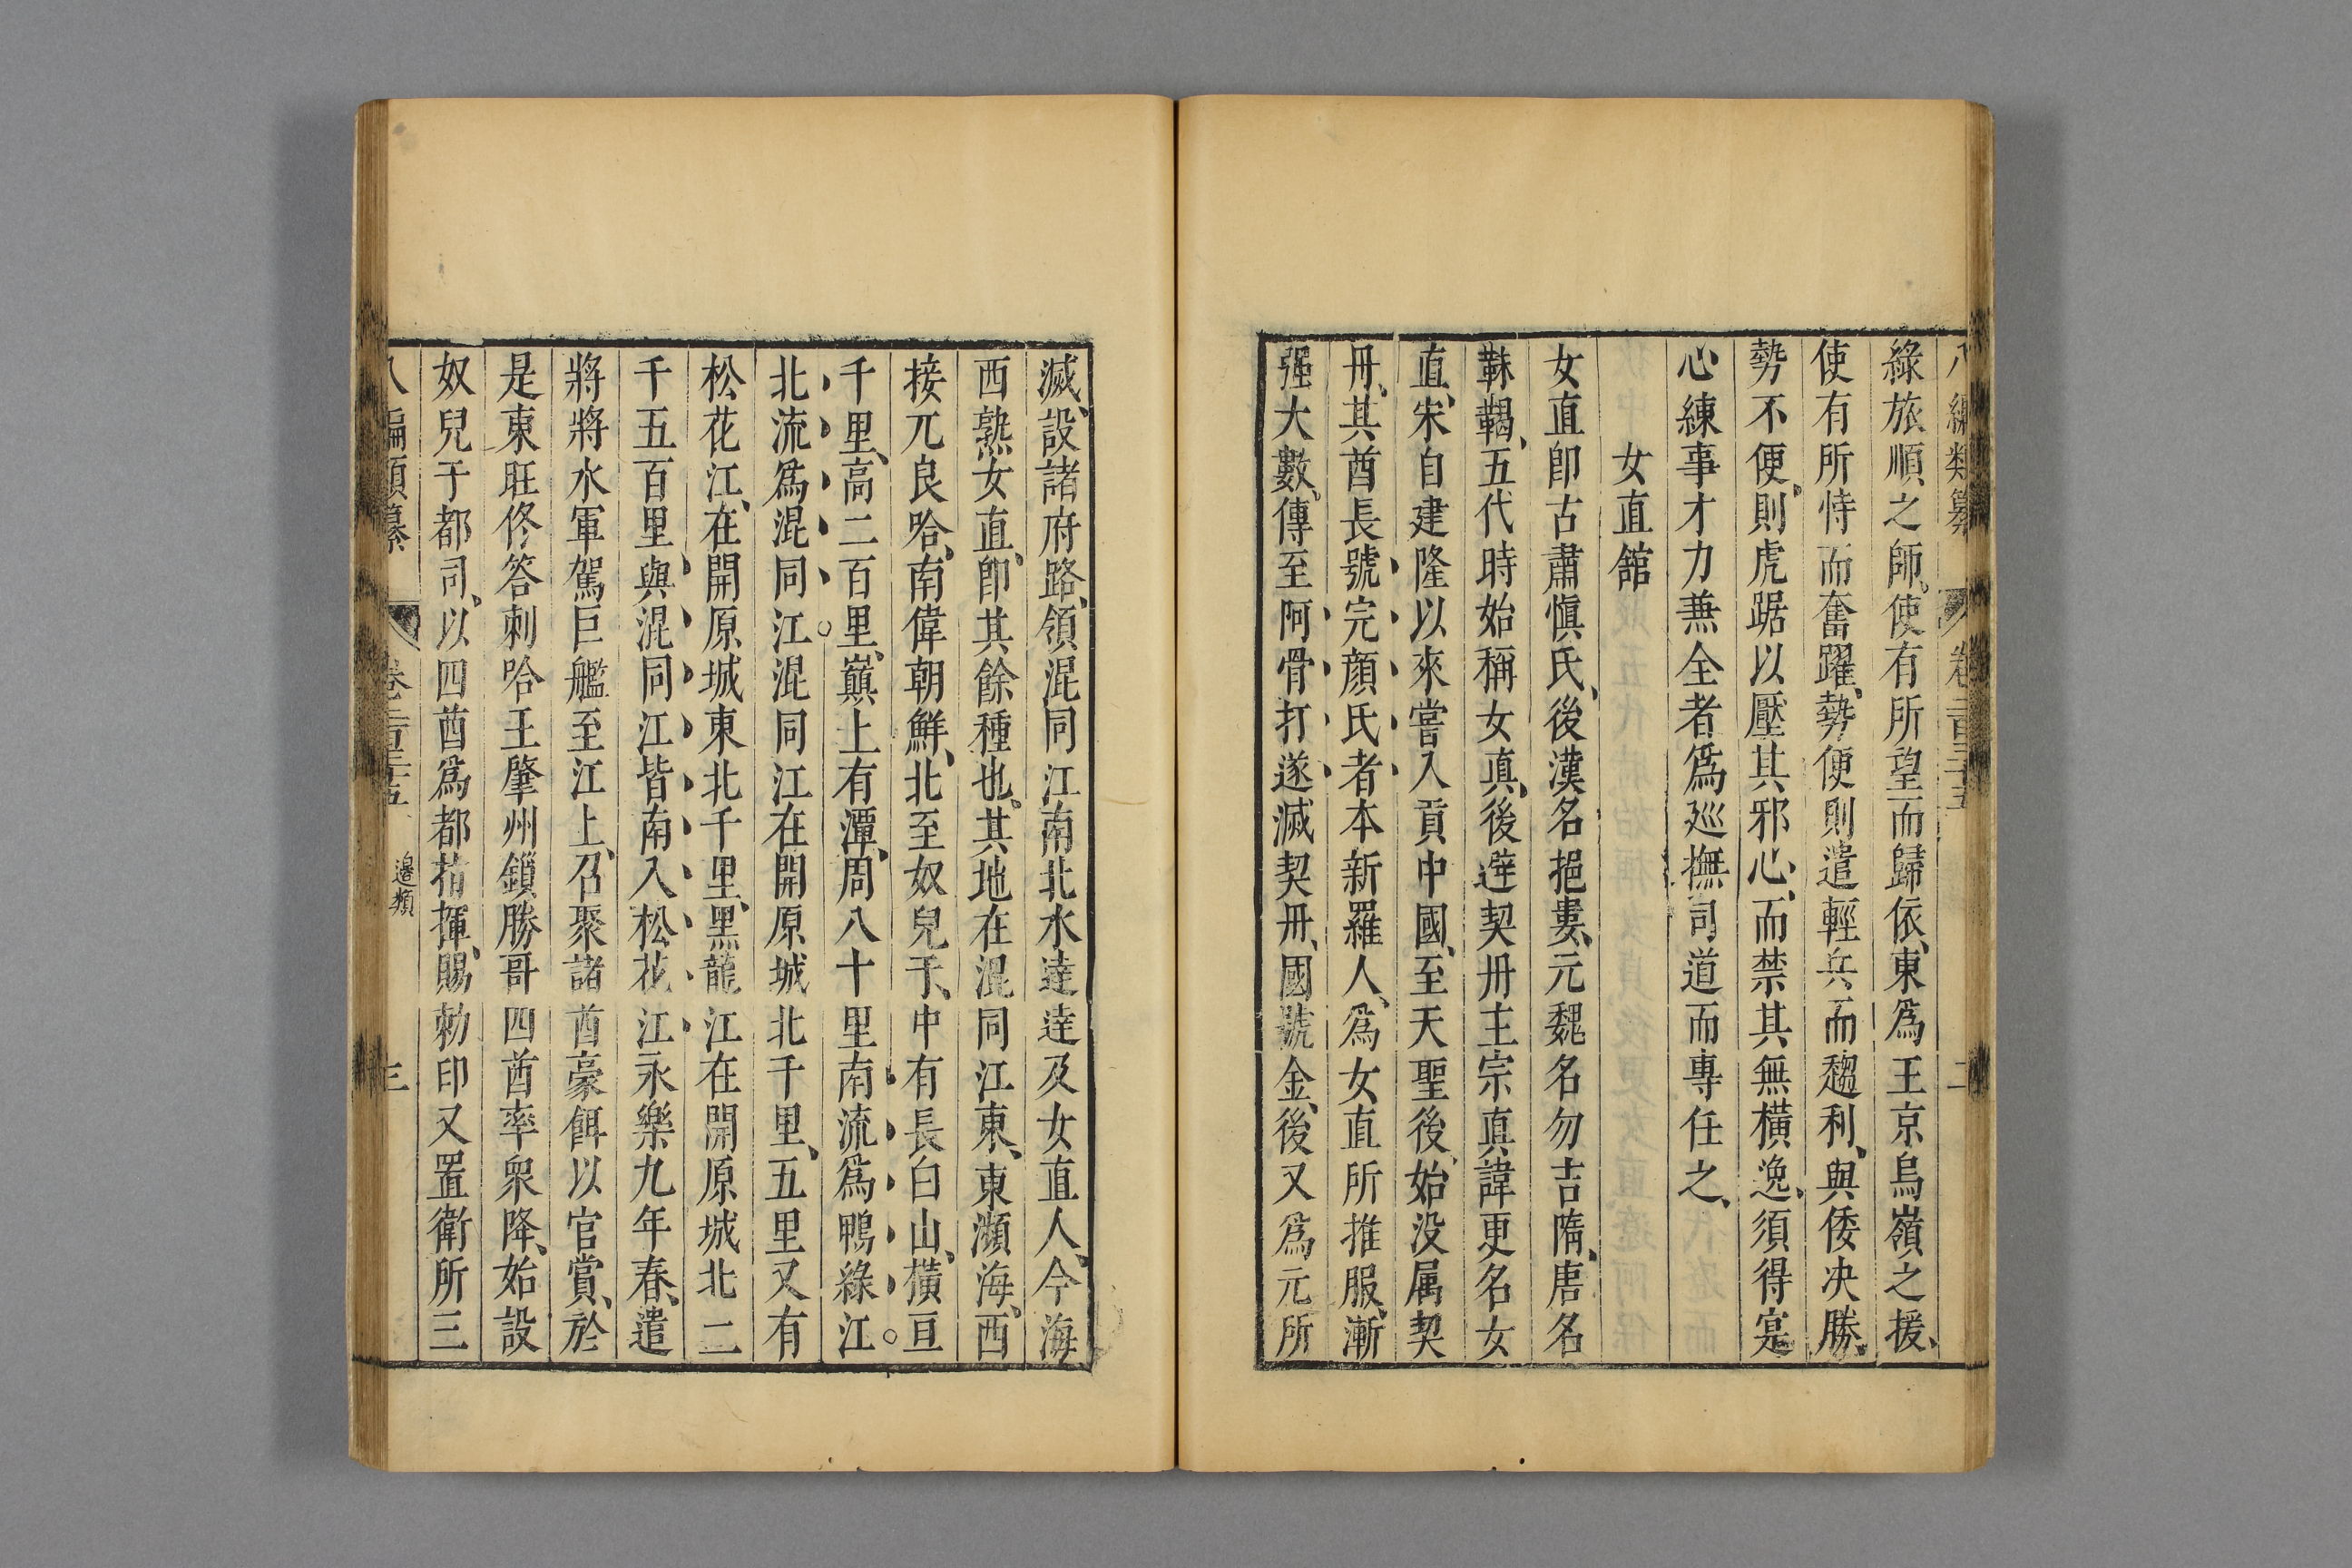 綠旅順之師。使有所望而歸依、東爲王京烏嶺之援、
使有所恃而奮躍、勢便則遣輕兵而趨利、與倭决勝、
勢不便、則虎踞以壓其邪心、而禁其無橫逸、須得寔
心練事才力兼全者爲廵撫司道而專任之、
女直館
女直卽古肅愼氏、後漢名挹婁、元魏名勿吉隋、唐名
靺鞨、五代時始稱女真、後避契丹主宗真諱更名女
直、宋自建隆以來嘗入貢中國、至天聖後、始没属契
丹、其酋長號完顔氏者本新羅人、爲女直所推服、漸
强大數傳至阿骨打遂滅契丹、國號金、後又爲元所
滅、設諸府路、領混同江南北水達達及女直人、今海
西熟女直、卽其餘種也、其地在混同江東、東瀕海、西
接兀良哈、南偉朝鮮、北至奴兒干、中有長白山、橫亘
千里、高二百里、巔上有潭、周八十里南流爲鴨綠江。
北流爲混同江。混同江在開原城北千里、五里又有
松花江、在開原城東北千里、黑龍江在開原城北二
千五百里、與混同江皆南入松花江永樂九年春、遣
將將水軍駕巨艦至江上、召聚諸酋豪餌以官賞、於
是東旺佟答刺哈王肇州鎖勝哥四酋率衆降、始設
奴兒于都司、以四酋爲都指揮、賜勅印又置衛所三
八編類纂 卷二百三十五 邉類 三